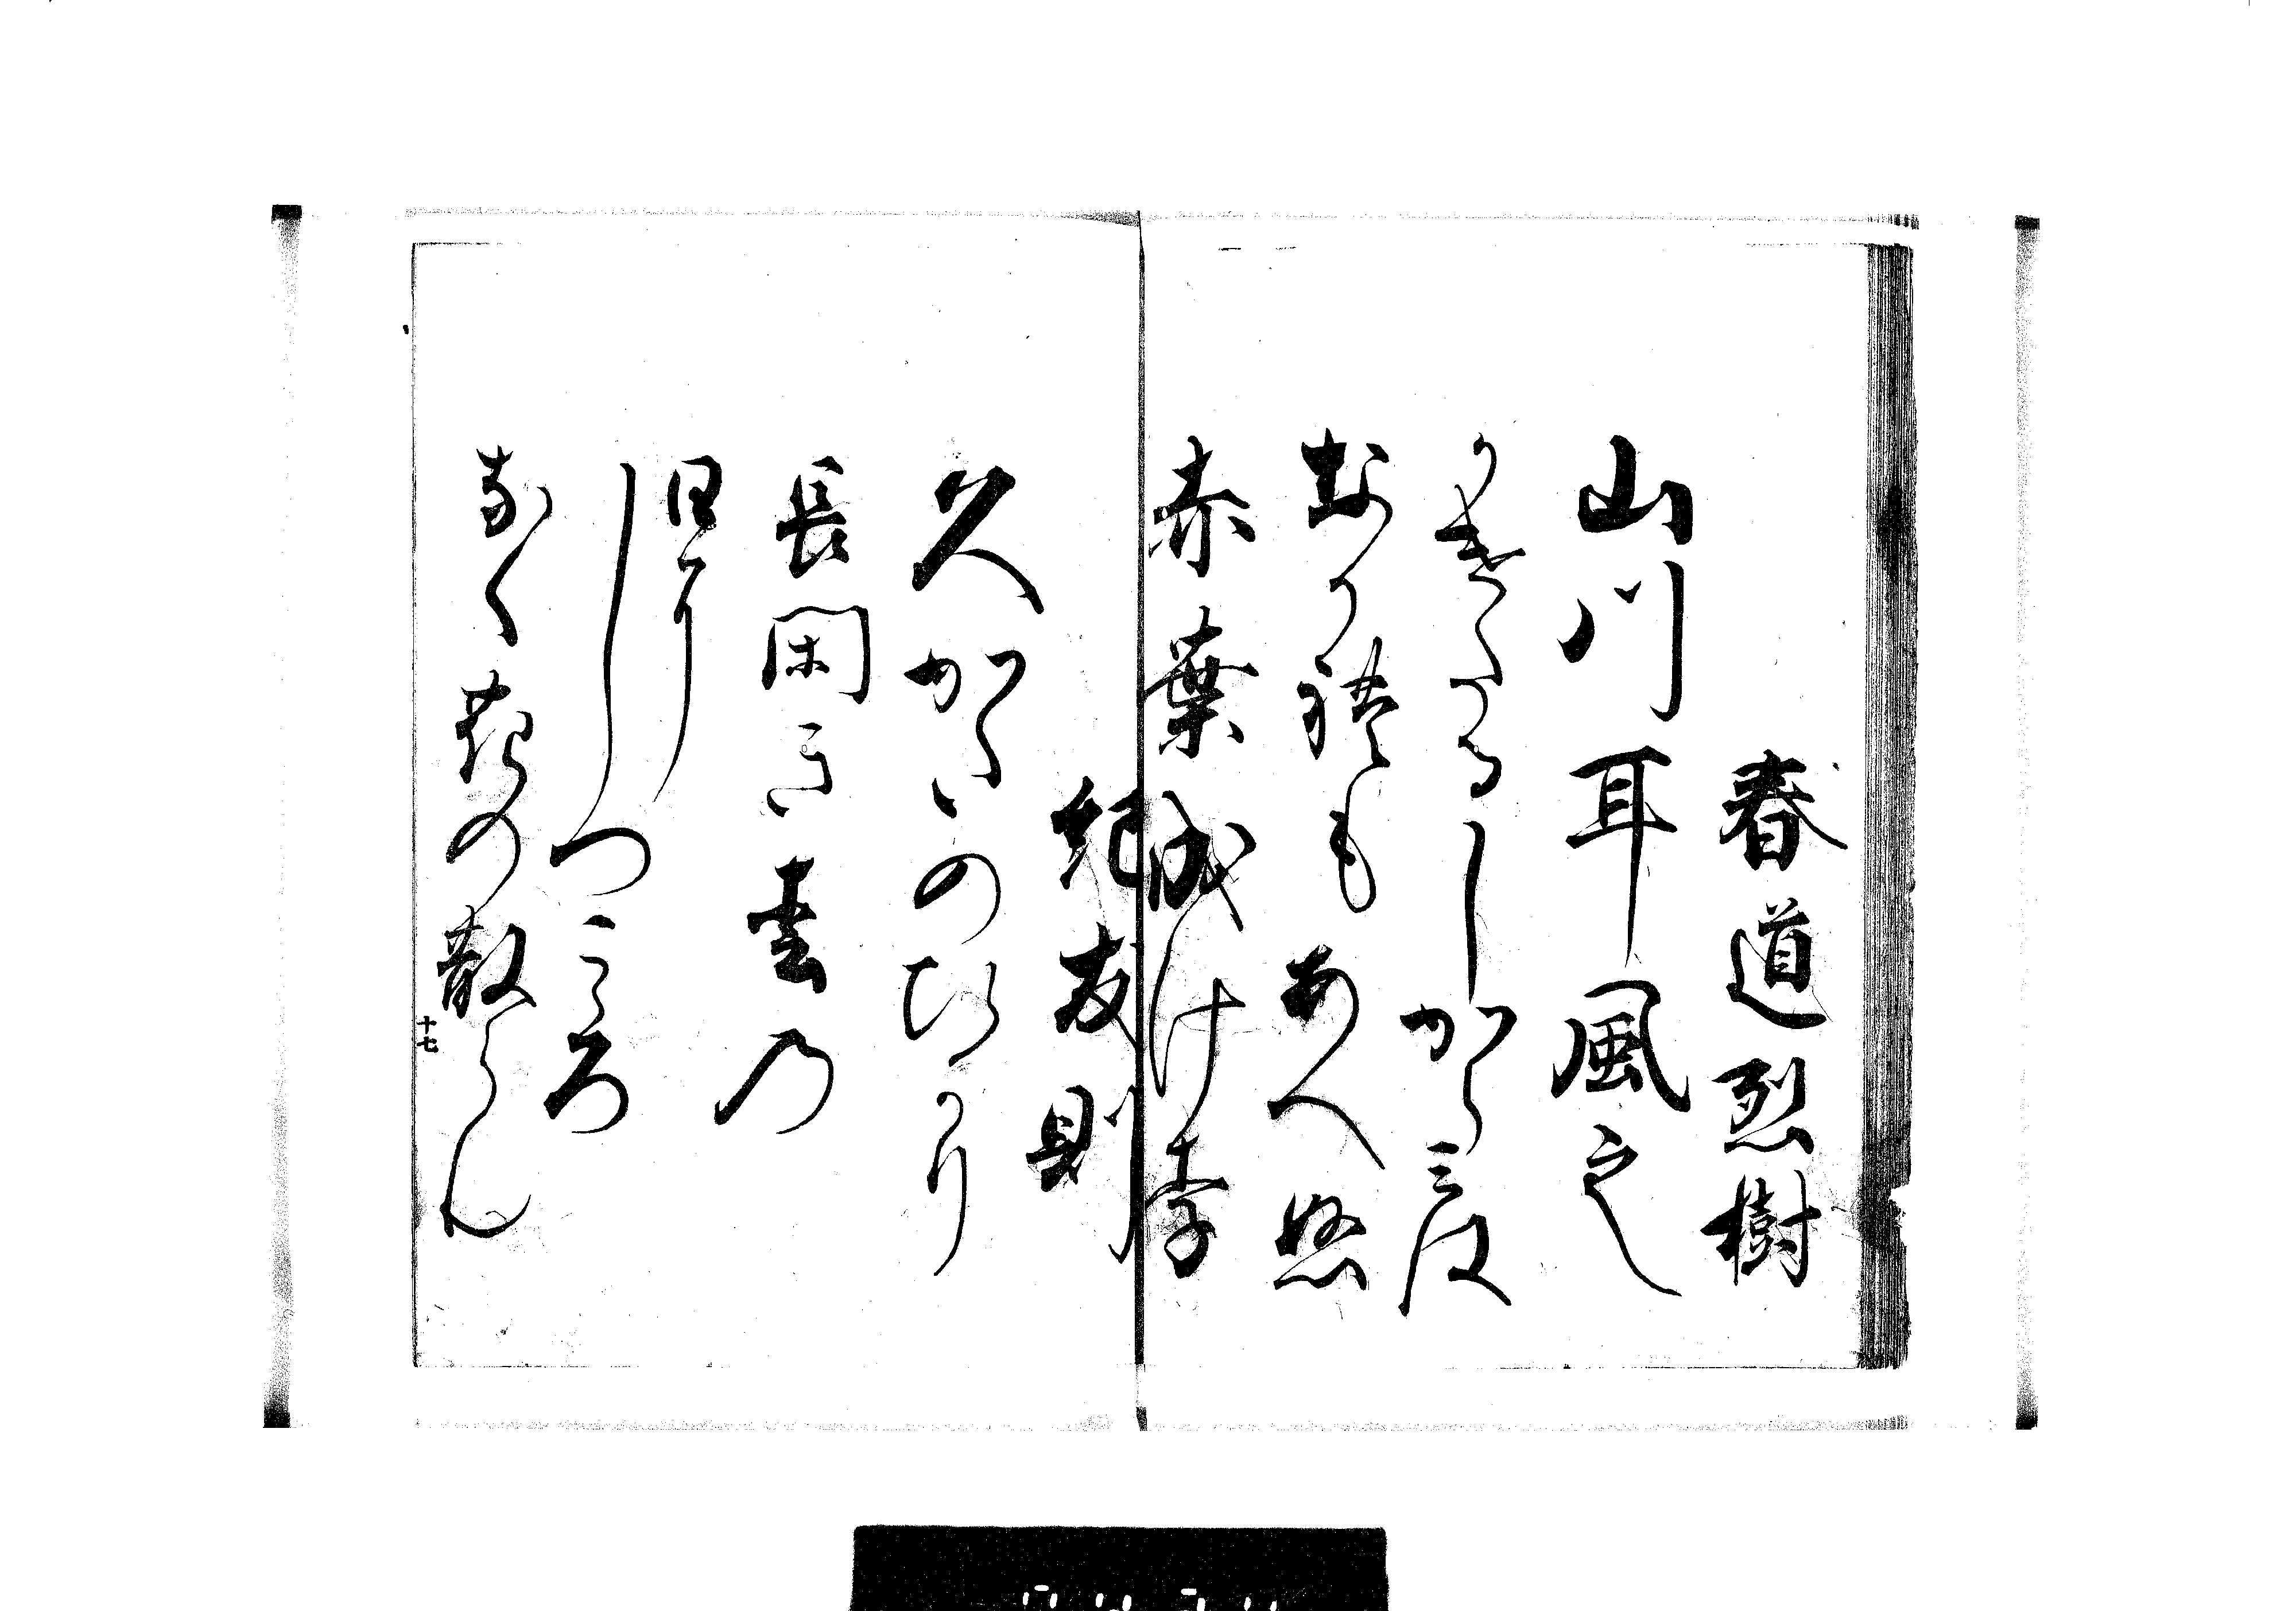 春道烈樹
山川耳風之
かけたるしからみは
なかれ禮もあへ怒
赤葉成け李
紀友則
久かたのひかり
長閑き春乃
日に
しつこゝろ
なく花の散らん
十七